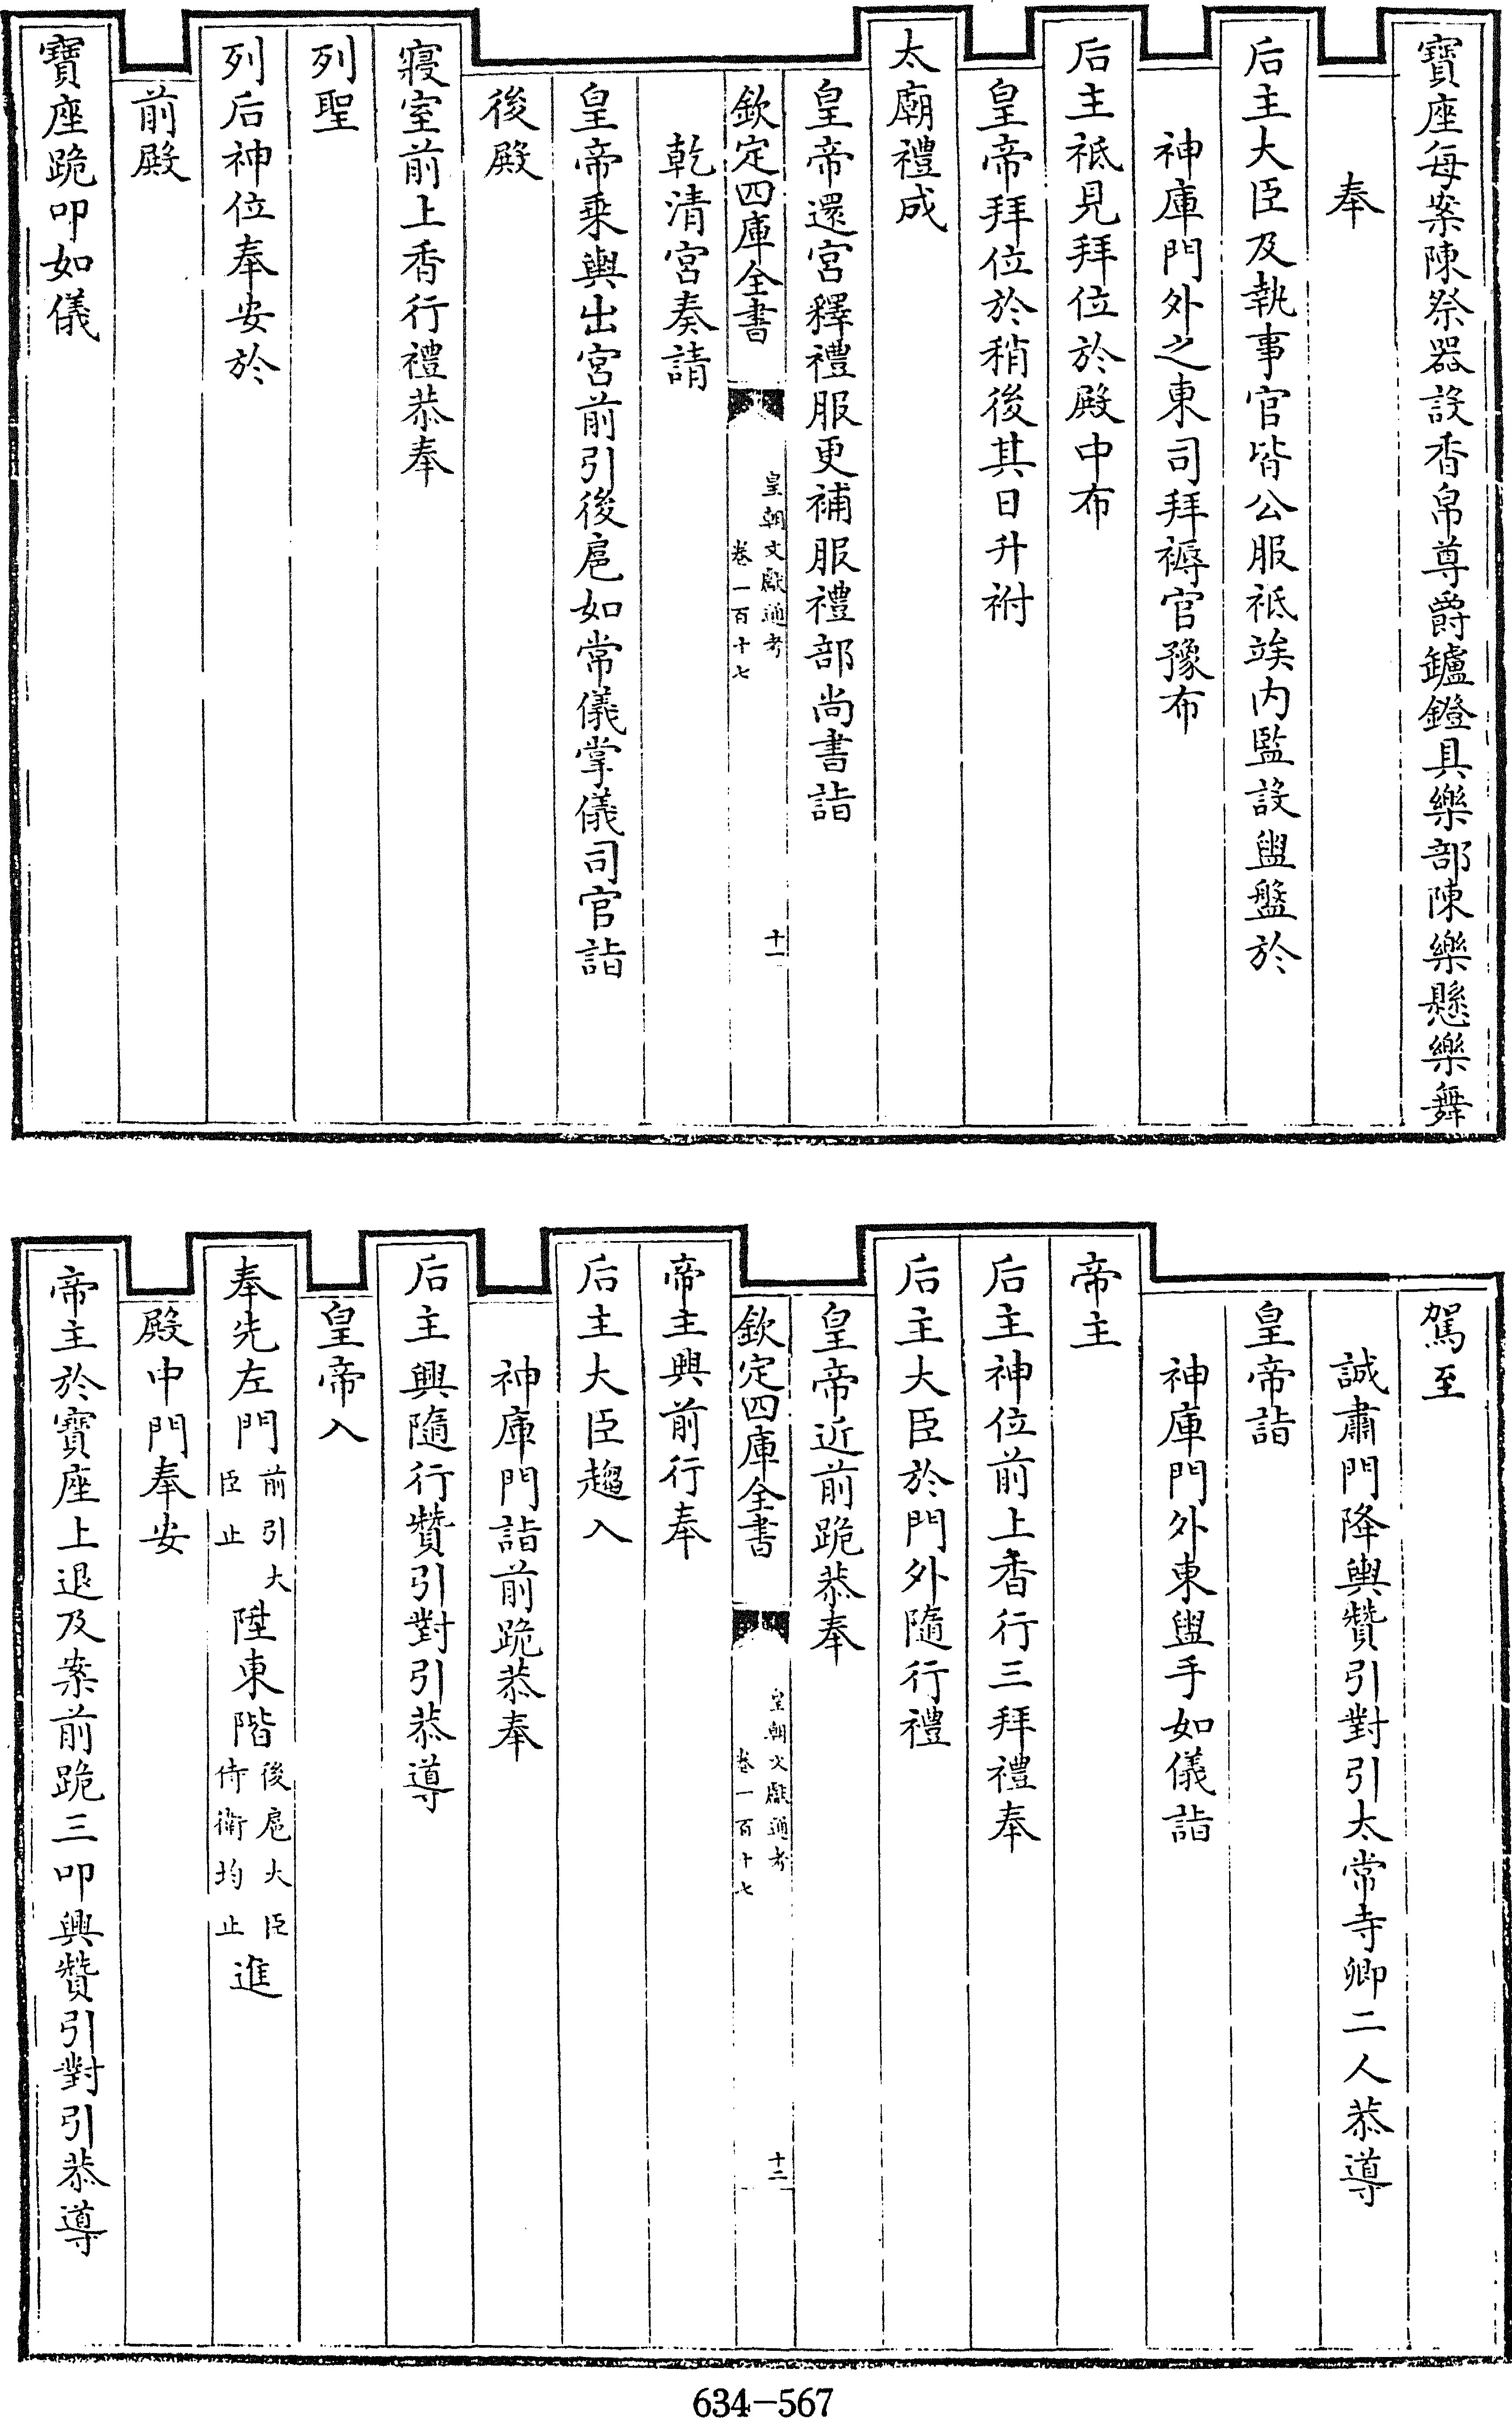 寶座每案陳祭器設香帛尊爵鑪鐙具樂部陳樂懸樂舞
奉
后主大臣及執事官皆公服祗竢内監設盥盤於
神庫門外之東司拜褥官豫布
后主祗見拜位於殿中布
皇帝拜位於稍後其日升祔
太廟禮成
皇帝還宮釋禮服更補服禮部尚書詣
欽定四庫全書
皇朝文獻通考
卷一百十七
十一
乾清宮奏請
皇帝乘輿出宮前引後扈如常儀掌儀司官詣
後殿
寢室前上香行禮恭奉
列聖
列后神位奉安於
前殿
寶座跪叩如儀
駕至
誠肅門降輿贊引對引太常寺卿二人恭導
皇帝詣
神庫門外東盥手如儀詣
帝主
后主神位前上香行三拜禮奉
后主大臣於門外隨行禮
皇帝近前跪恭奉
欽定四庫全書
皇朝文獻通考
卷一百十七
十二
帝主興前行奉
后主大臣趨入
神庫門詣前跪恭奉
后主興隨行贊引對引恭導
皇帝入
奉先左門前引大臣止陞東階後扈大臣侍衛均止進
殿中門奉安
帝主於寶座上退及案前跪三叩興贊引對引恭導
634-567